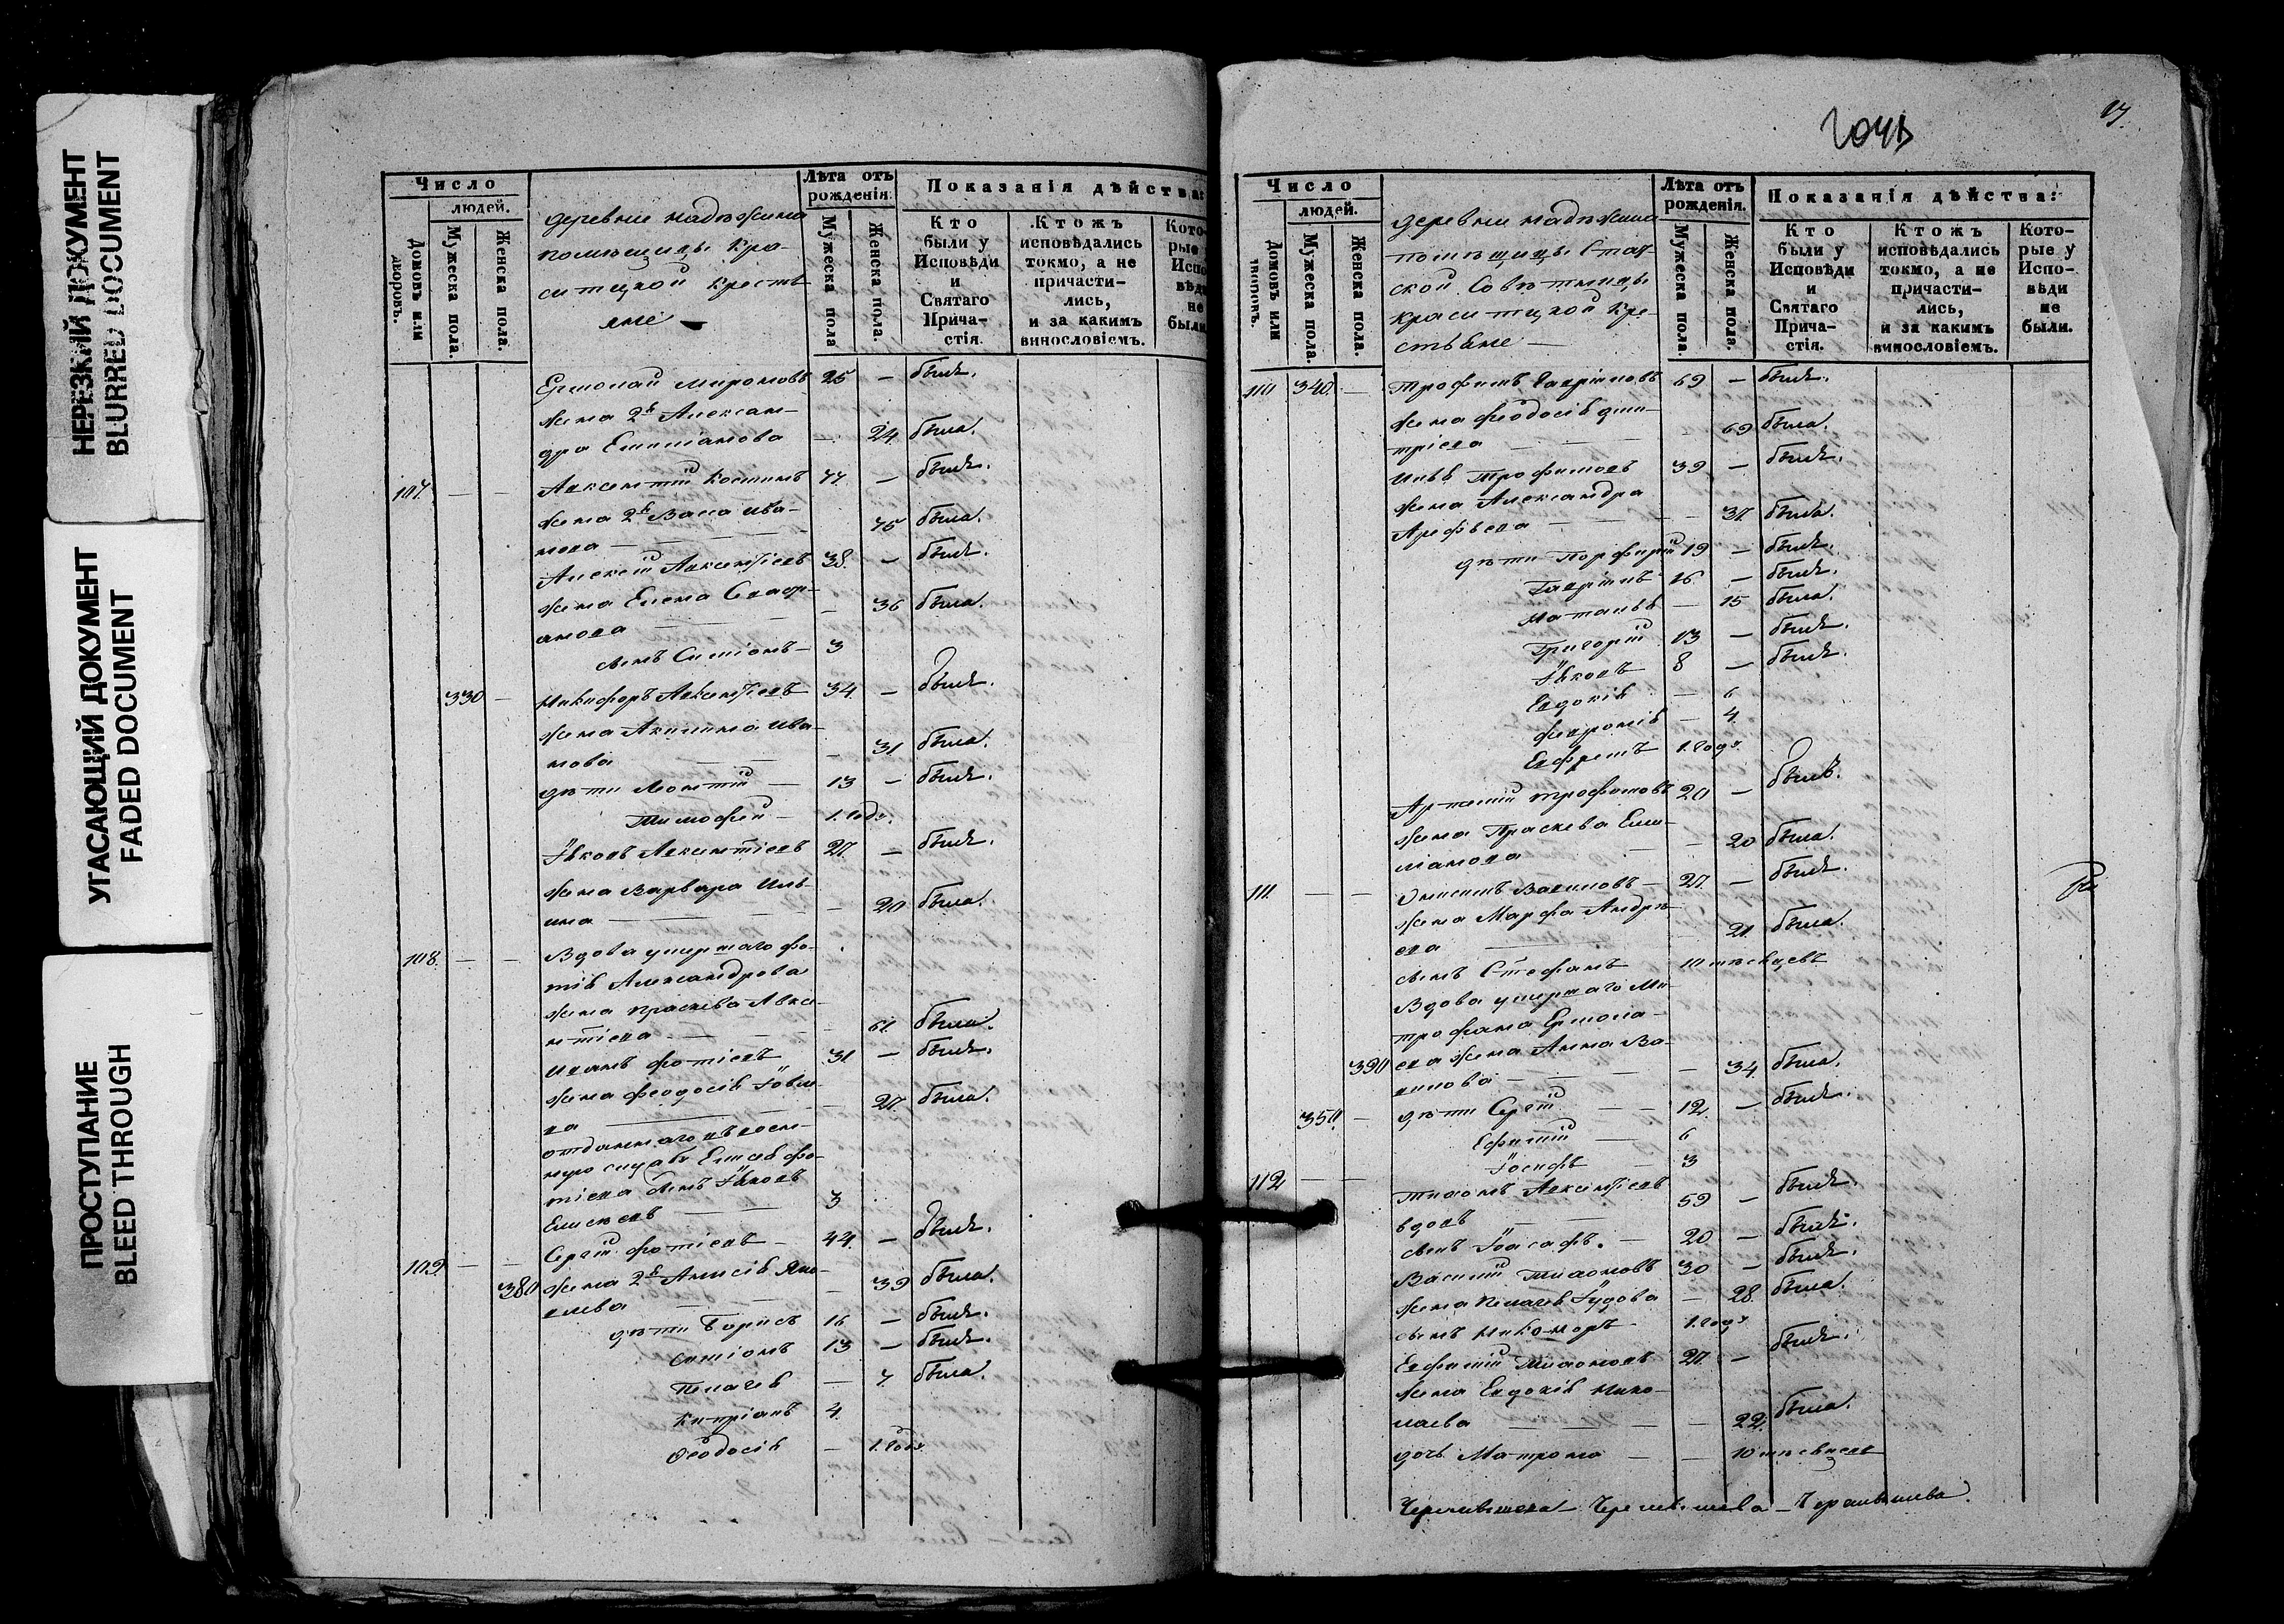 НЕРЕЗКИЙ ДОКУМЕНТ
BLURRED DOCUMENT
УГАСАЮЩИЙ ДОКУМЕНТ
FADED DOCUMENT
ПРОСТУПАНИЕ
BLEED THROUGH
Число
людей.
Домовъ или дворовъ.
Мужеска пола.
Женска пола.
деревни надѣжина
помѣщицы Кра-
ситцкой Кресть
яне
Лѣта отъ рожденія.
Мужеска пола
Женска пола.
Показанія дѣйства:
Кто
были у
Исповѣди
и
Святаго
Прича-
стія.
Ктожъ
исповѣдались
токмо, а не
причасти-
лись,
и за какимъ
винословіемъ.
Кото-
рые
Испо
вѣд
не
были
Ермолай Мироновъ 25 — былъ.
жена 2я Алексан-
дра Емилiанова — 24 была.
107. — — Авксентій Костинъ 77. — былъ.
жена 2я Васса Ива-
нова — 75 была.
Алексѣй Авксентіевъ 38. — былъ.
жена Елена Селив-
анова — 36 была.
сынъ Симіонъ — 3
330 — Никифоръ Авксентіевъ 34. — былъ.
жена Акилина Ива-
нова — 31 была.
дѣти Леонтій — 13 — былъ.
Тимофей — 1. годъ.
Іяковъ Авксентіевъ 27. — былъ.
жена Варвара Иль-
ина — 20 была.
108. — — Вдова умершаго Фо-
тія Александрова
жена Праскева Авксе-
нтіева — 61. была.
Иванъ Фотіевъ 31 — былъ.
жена Феодосія Іовле-
ва — 27. была.
отданнаго въ воен-
ную службу Елисея Фо-
тіева сынъ Іяковъ
Елисѣевъ — 3
109. — — Сергій Фотіевъ — 44. — былъ.
380 жена 2я Анисія Яко-
влева — 39 была.
дѣти Борисъ 16 — былъ.
Симіонъ 13 — былъ.
Пелагея — 7. была.
Кипріанъ 4.
Феодосія — 1. годъ.
17.
Число
людей.
Домовъ или дворовъ.
Мужеска пола.
Женска пола.
деревни надѣжина
помѣщицы Стат-
ской Совѣтницы
Краситцкой Кре-
стьяне —
Лѣта отъ рожденія.
Мужеска пола.
Женска пола.
Показанія дѣйства:
Кто
были у
Исповѣди
и
Святаго
Прича-
стія.
Ктожъ
исповѣдались
токмо, а не
причасти-
лись,
и за какимъ
винословіемъ.
Кото-
рые у
Испо-
вѣди
не
были.
110 340. — Трофимъ Гавріиловъ 69 — былъ.
жена Феодосія Дими-
тріева — 69 была.
Илья Трофимовъ 39 — былъ.
жена Александра
Арефьева — 37. была.
дѣти Порфирій 19 — былъ.
Гавріилъ 16 — былъ.
Наталья — 15 была.
Григорій 13 — былъ.
Іяковъ 8 — былъ.
Евдокія — 6
Февронія — 4.
Евфремъ 1. годъ.
Артемій Трофимовъ 20 — былъ.
жена Праскева Еми-
ліанова — 20 была.
111. — — Василовъ — 27. — былъ.
жена Марфа Андрѣ-
ева — 21. была.
сынъ Стефанъ 10 мѣсяцевъ
Вдова умершаго Ми-
трофана Ермола-
390 ева жена Анна Ва-
вилова — 34. была.
350. — дѣти Сергій — 12. — былъ.
Ефимій — 6
Іосифъ — 3
112 — — Тихонъ Авксентіевъ
вдовъ 59 — былъ.
сынъ Іоасафъ. — 20 — былъ.
Василій Тихоновъ 30 — былъ.
жена Пелагея Іудова — 28. была.
сынъ Никоноръ 1. годъ
Евфимій Тихоновъ 27. — былъ.
жена Евдокія Нико-
лаева — 22. была.
дочь Матрона — 10 мѣсяцевъ